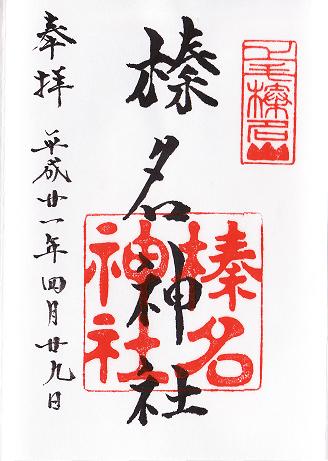 上毛榛名山
榛名神社
榛名神社
奉拝 平成廿一年四月廿九日